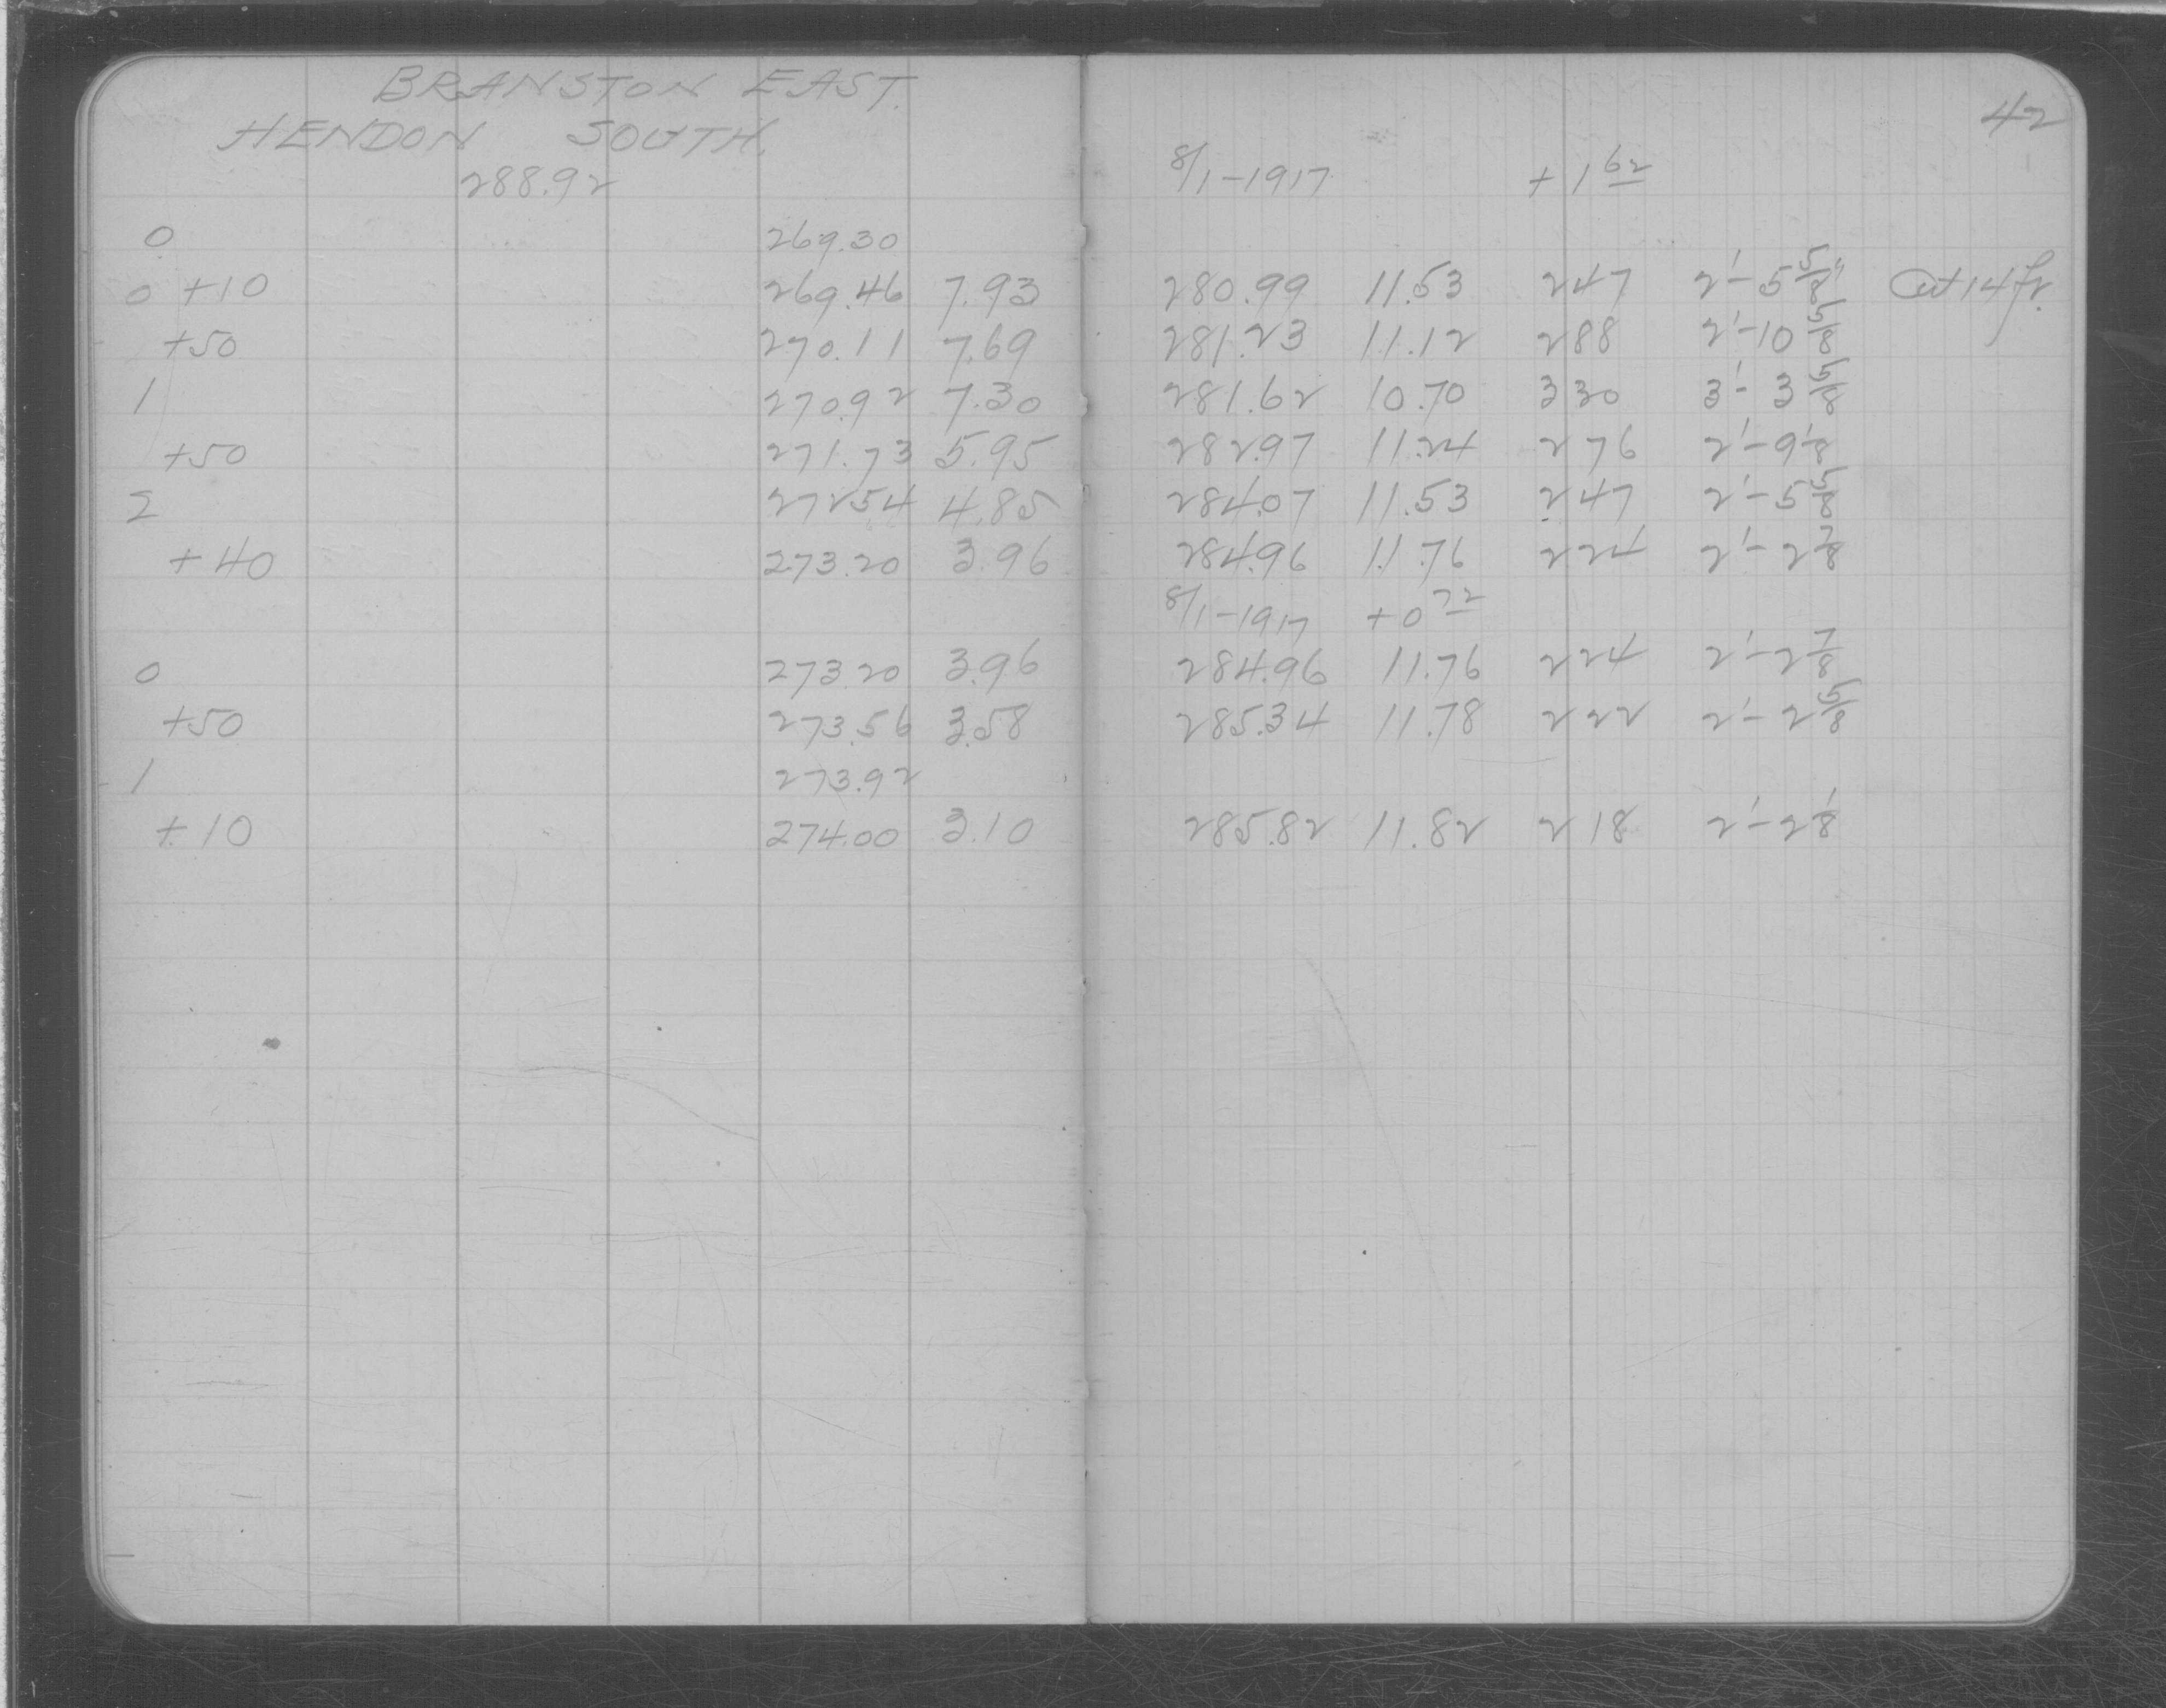 BRANSTON EAST.
HENDON SOUTH.
42
288.92 8/1-1917 +1 62
0 269.30
0 +10 269.46 7.93 280.99 11.53 247 2'-5 5/8" Cut 14 ft.
+50 270.11 7.69 281.23 11.12 288 2'-10 5/8
1 270.92 7.30 281.62 10.70 330 3'-3 5/8
+50 271.73 5.95 282.97 11.24 276 2'-9 1/8
2 27254 4.85 284.07 11.53 247 2'-5 5/8
+40 273.20 3.96 284.96 11.76 224 2'-2 7/8
8/1-1917 +0 72
0 273.20 3.96 284.96 11.76 224 2'-2 7/8
+50 273.56 3.58 285.34 11.78 222 2'-2 5/8
1 273.92
+10 274.00 3.10 285.82 11.82 218 2'-2 1/8